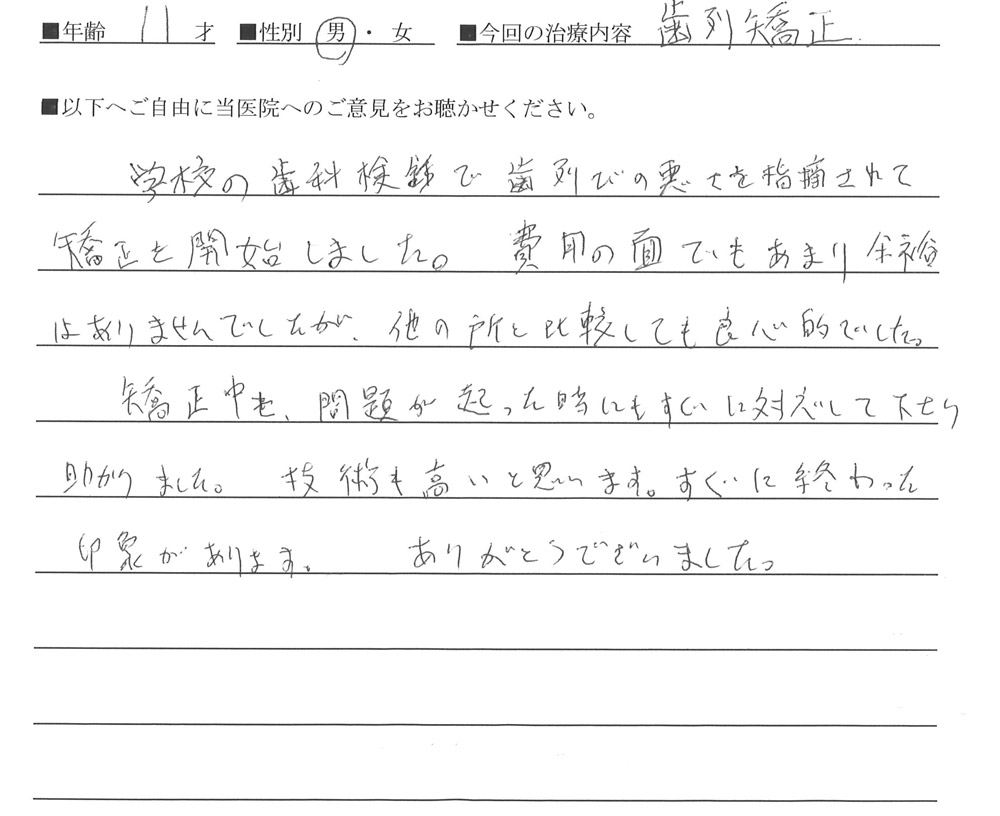 ■年齢 11 才 ■性別 男・女 ■今回の治療内容 歯列矯正.
■以下へご自由に当医院へのご意見をお聴かせください。
学校の歯科検診で歯列びの悪さを指摘されて
矯正を開始しました。 費用の面でもあまり余裕
はありませんでしたが、他の所と比較しても良心的でした。
矯正中も、問題が起った時にもすぐに対応して下さり
助かりました。 技術も高いと思います。すぐに終わった
印象があります。 ありがとうございました。